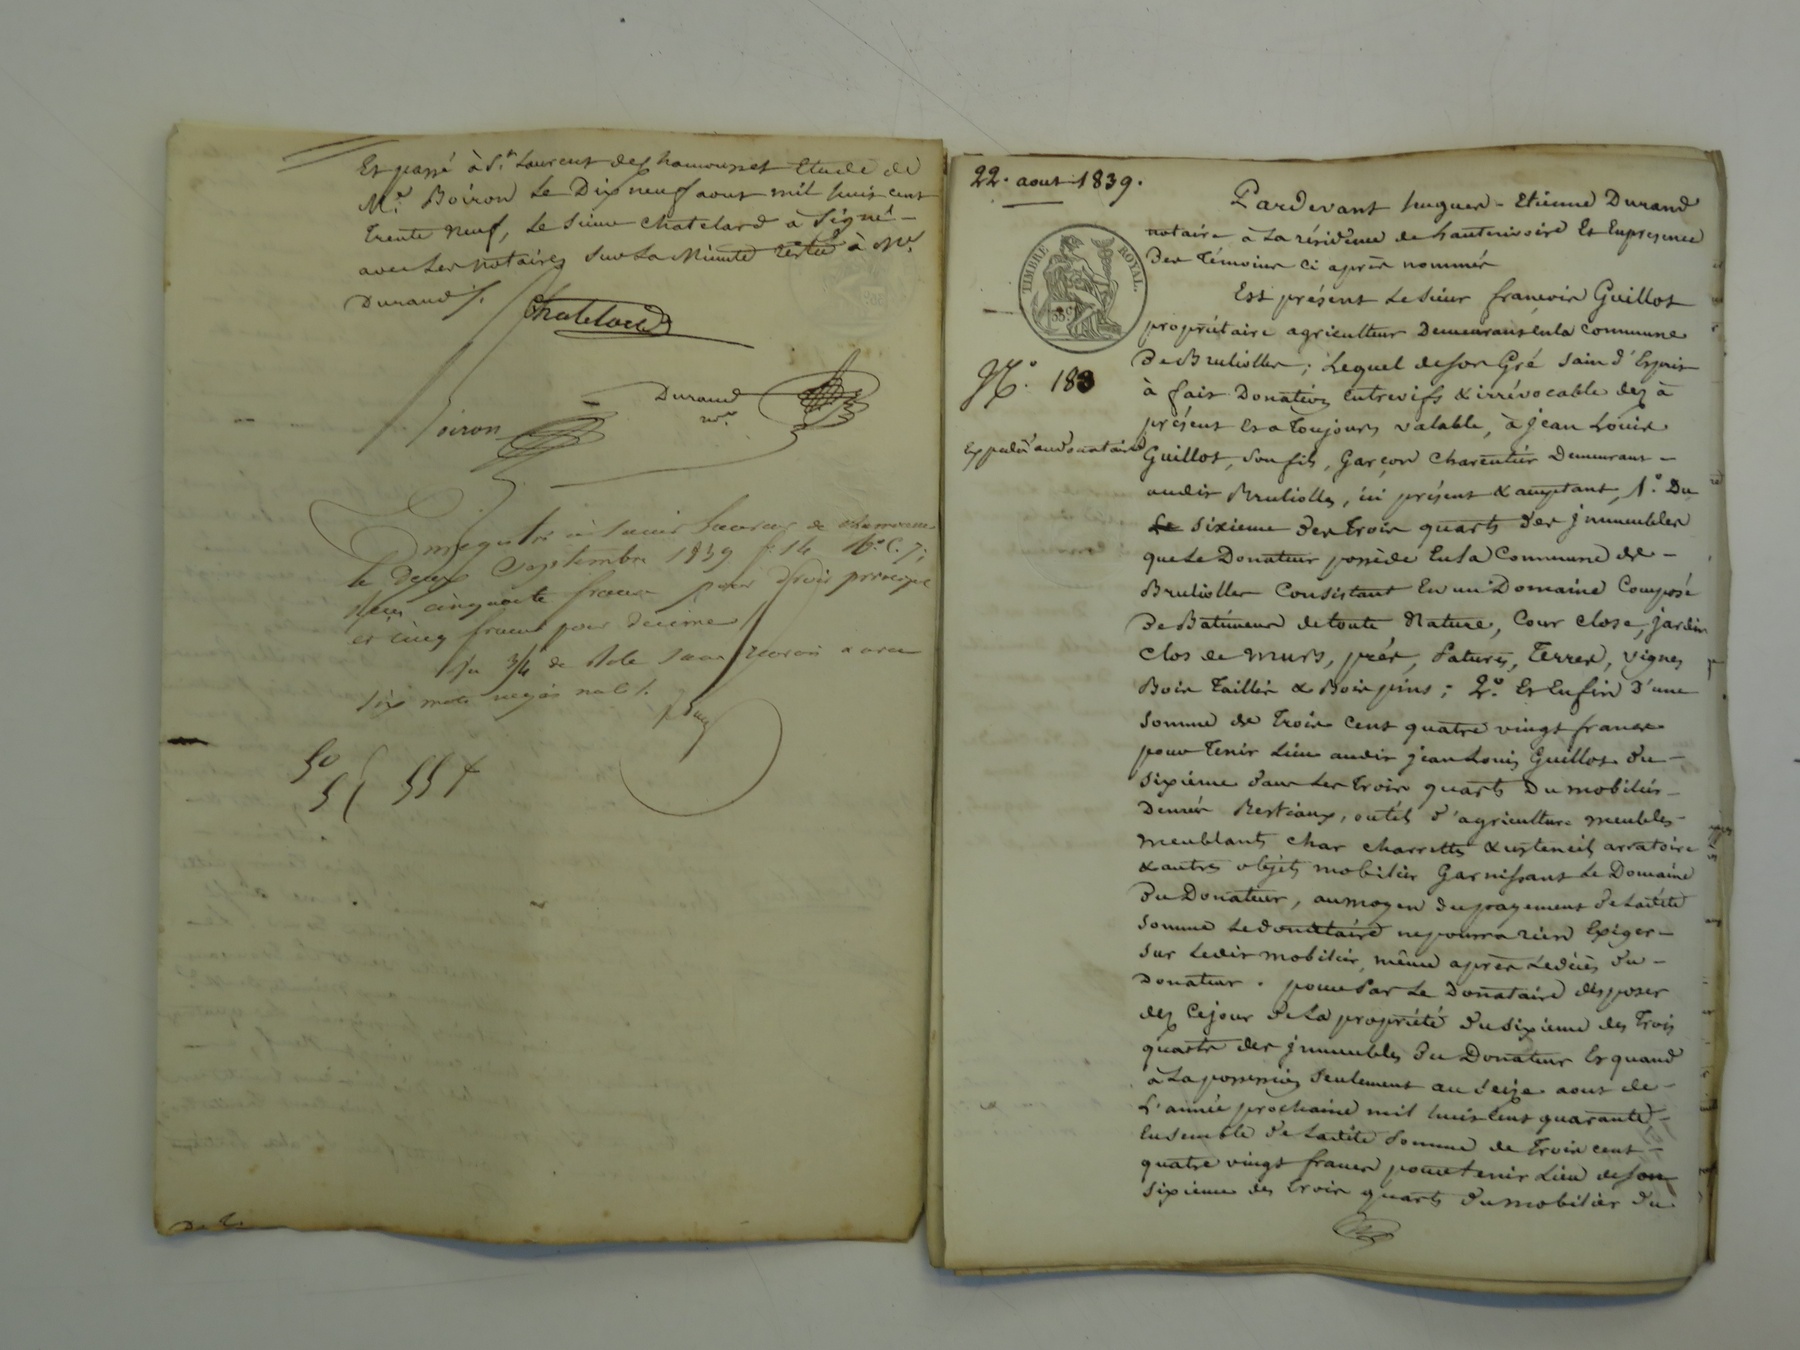 Et passé à St. Laurent de Chamousset Etude de
Me. Boiron Le Dix neuf aout mil huit cent
Trente neuf, Le Sieur Chatelard à Signé
avec Les notaires Sur La Minute restée à Me.
Durand /.
Chatelard
Durand
nre.
Boiron
Enregistré à Saint Laurent de Chamousset
le deux Septembre 1839 f. 14 Vo. C. 7;
Reçu cinquante francs pour droit principal
et cinq francs pour décime
Un 3/4 de Role Sans renvoi avec
six mots rayés nuls /.
50
5 55 f
22. aout 1839.
TIMBRE ROYAL.
35 c
No. 183
Expédié au donataire
Pardevant hugues - Etienne Durand
notaire à La résidence de hauterivoire Et Enpresence
Des Témoins Ci après nommés
Est présent Le Sieur françois Guillot
propriétaire agriculteur Demeurant En la Commune
De Brullioles ; Lequel de son Gré Sain d'Esprit
à fait Donation entrevifs & irrévocable dez à
présent Et a Toujours valable, à jean Louis
Guillot, Son fils, Garçon Charentier Demeurant -
audit Brullioles, ici présent & acceptant, 1.° Du
Le Sixieme des Trois quarts des jmmeubles
que Le Donateur possède En La Commune de -
Brullioles Consistant En un Domaine Composé
De Batiments de toute Nature, Cour close, jardin
Clos de murs, prés, Patures, Terres, vignes
Bois Taillis & Bois pins ; 2.° Et Enfin D'une
Somme de Trois Cent quatre vingt francs
pour Tenir Lieu audit jean Louis Guillot du -
Sixième dans Les Trois quarts Du mobilier -
Denrés Bestiaux, outils d'agriculture meubles -
meublants char charrette & ustensils arratoire
& autres objets mobilier Garnissant Le Domaine
Du Donateur, au moyen du payement de Ladite
Somme Le donataire ne pourra rien Exiger -
Sur Ledit mobilier, même après Le décès du -
Donateur. pour Par Le Donataire disposer
dez Ce jour de La propriété du sixieme des Trois
quarts des jmmeubles Du Donateur Et quand
à La possession Seulement au Seize aout de -
L'année prochaine mil huit Cent quarante -
Ensemble de Ladite Somme de Trois cent -
quatre vingt francs pour tenir Lieu de son
Sixieme des Trois quarts du mobilier du